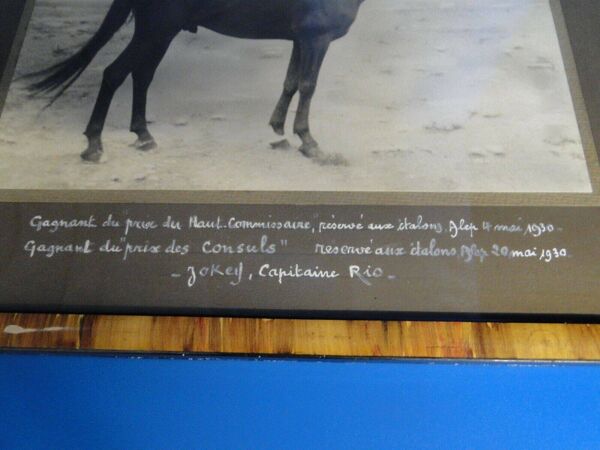 Gagnant du prix du Haut-Commissaire", réservé aux étalons, Alep 4 mai 1930-
Gagnant du "prix des Consuls" reservé aux étalons, Alep 20 mai 1930-
- JoKey, Capitaine Rio -